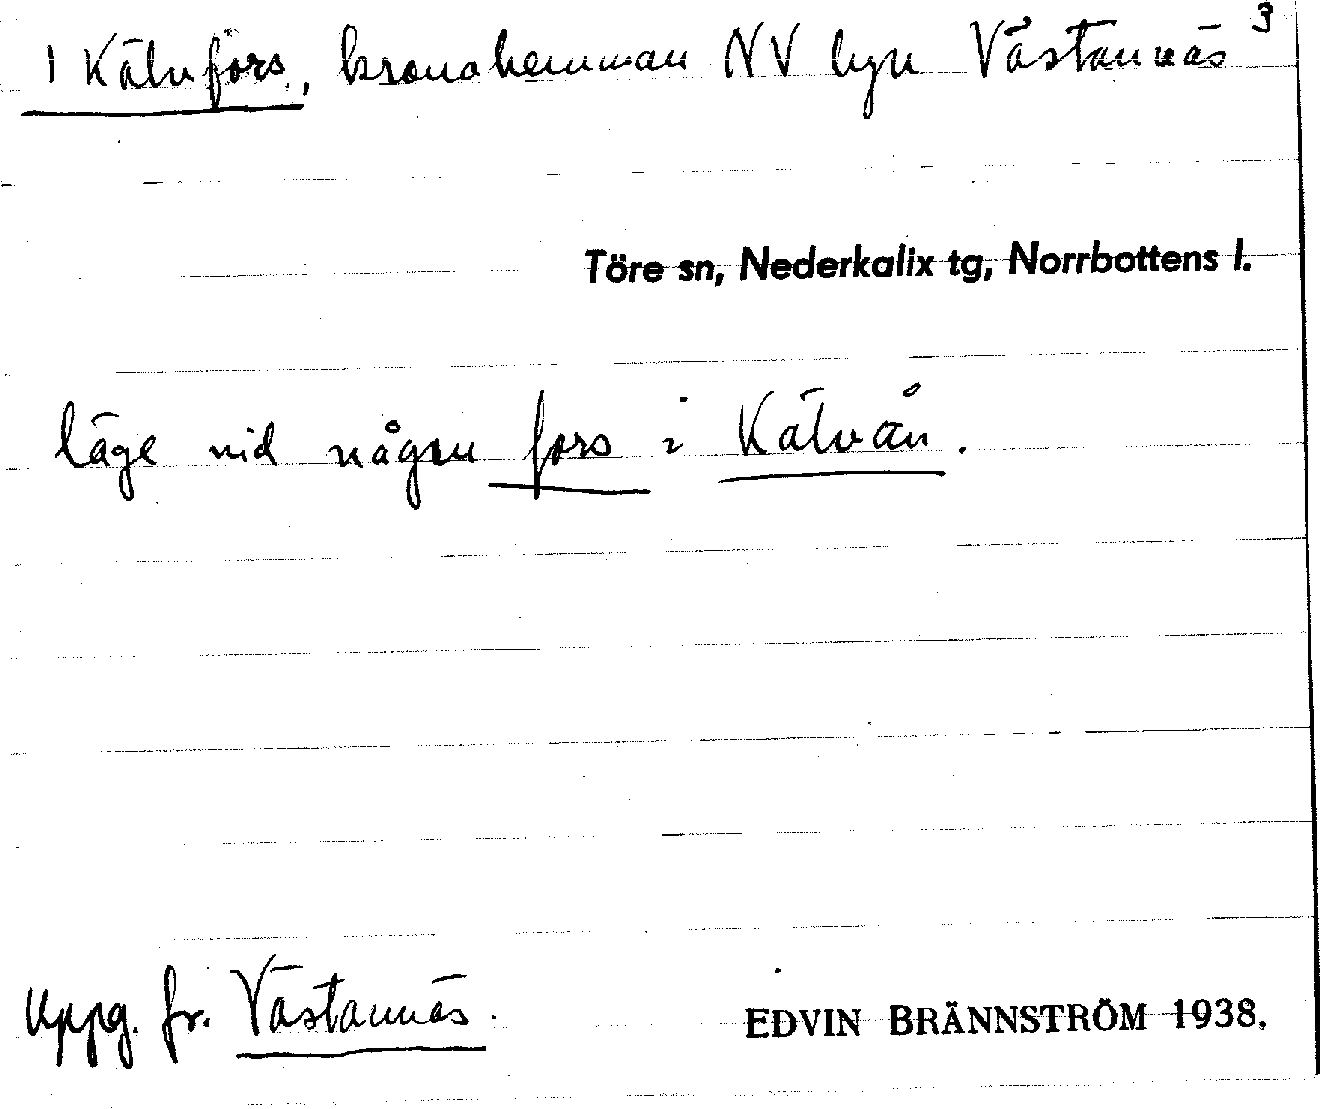 1 Kälvfors, kronohemman NV byn Västannäs 3
Töre sn, Nederkalix tg, Norrbottens l.
läge vid någon fors i Kälvån.
Uppg. fr. Västannäs.
EDVIN BRÄNNSTRÖM 1938.